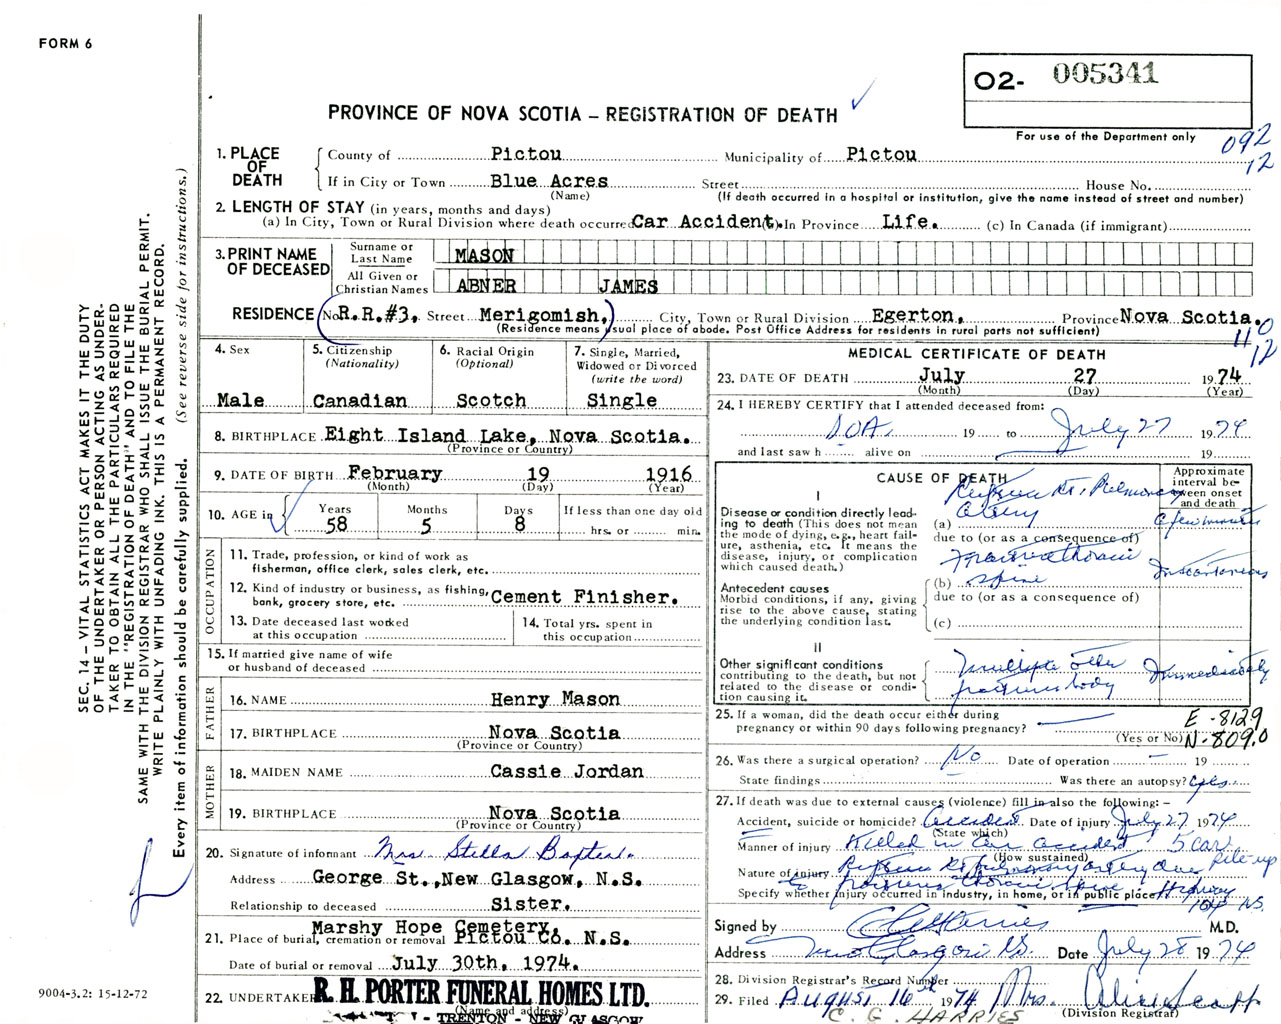 FORM 6
O2- 005341
PROVINCE OF NOVA SCOTIA – REGISTRATION OF DEATH
For use of the Department only
092
12
1. PLACE OF DEATH
County of Pictou Municipality of Pictou
If in City or Town Blue Acres Street House No.
(Name) (If death occurred in a hospital or institution, give the name instead of street and number)
2. LENGTH OF STAY (in years, months and days)
(a) In City, Town or Rural Division where death occurred Car Accident. In Province Life. (c) In Canada (if immigrant)
3. PRINT NAME OF DECEASED
Surname or Last Name MASON
All Given or Christian Names ABNER JAMES
RESIDENCE No R.R.#3. Street Merigomish, City, Town or Rural Division Egerton, Province Nova Scotia.
(Residence means usual place of abode. Post Office Address for residents in rural parts not sufficient)
110
12
4. Sex
Male
5. Citizenship (Nationality)
Canadian
6. Racial Origin (Optional)
Scotch
7. Single, Married, Widowed or Divorced (write the word)
Single
8. BIRTHPLACE Eight Island Lake, Nova Scotia.
(Province or Country)
9. DATE OF BIRTH February 19 1916
(Month) (Day) (Year)
10. AGE in Years Months Days If less than one day old
58 5 8 hrs. or min.
OCCUPATION
11. Trade, profession, or kind of work as fisherman, office clerk, sales clerk, etc.
12. Kind of industry or business, as fishing, bank, grocery store, etc. Cement Finisher.
13. Date deceased last worked at this occupation
14. Total yrs. spent in this occupation
15. If married give name of wife or husband of deceased
FATHER
16. NAME Henry Mason
17. BIRTHPLACE Nova Scotia
(Province or Country)
MOTHER
18. MAIDEN NAME Cassie Jordan
19. BIRTHPLACE Nova Scotia
(Province or Country)
20. Signature of informant Mrs. Stella
Address George St., New Glasgow, N.S.
Relationship to deceased Sister.
Marshy Hope Cemetery,
21. Place of burial, cremation or removal Pictou Co. N.S.
Date of burial or removal July 30th, 1974.
22. UNDERTAKER R. H. PORTER FUNERAL HOMES LTD.
(Name and address)
- TRENTON - NEW GLASGOW
MEDICAL CERTIFICATE OF DEATH
23. DATE OF DEATH July 27 1974
(Month) (Day) (Year)
24. I HEREBY CERTIFY that I attended deceased from:
D.O.A. 19 to July 27 1974
and last saw h alive on 19
CAUSE OF DEATH
Approximate interval between onset and death
I
Disease or condition directly leading to death (This does not mean the mode of dying, e.g., heart failure, asthenia, etc. It means the disease, injury, or complication which caused death.)
Rupture Rt. Pulmonary
(a) artery a few minutes
due to (or as a consequence of)
Fracture thoracic
(b) spine Instantaneous
due to (or as a consequence of)
(c)
Antecedent causes
Morbid conditions, if any, giving rise to the above cause, stating the underlying condition last.
II
Other significant conditions contributing to the death, but not related to the disease or condition causing it.
multiple other Immediately
fractures body
25. If a woman, did the death occur either during pregnancy or within 90 days following pregnancy?
(Yes or No)
E -8129
N-809.0
26. Was there a surgical operation? No Date of operation – 19
State findings Was there an autopsy? yes
27. If death was due to external causes (violence) fill in also the following: –
Accident, suicide or homicide? Accident Date of injury July 27 1974
(State which)
Manner of injury Killed in Car accident 5 car pile-up
(How sustained)
Nature of injury Rupture Rt pulmonary artery due to fracture thoracic spine
Specify whether injury occurred in industry, in home, or in public place Highway 104 NS.
Signed by M.D.
Address New Glasgow N.S. Date July 28 1974
28. Division Registrar's Record Number
29. Filed August 16th 1974 Mrs. Alice Scott
(Division Registrar)
C. G. HARRIES
SEC. 14 – VITAL STATISTICS ACT MAKES IT THE DUTY
OF THE UNDERTAKER OR PERSON ACTING AS UNDER-
TAKER TO OBTAIN ALL THE PARTICULARS REQUIRED
IN THE "REGISTRATION OF DEATH" AND TO FILE THE
SAME WITH THE DIVISION REGISTRAR WHO SHALL ISSUE THE BURIAL PERMIT.
WRITE PLAINLY WITH UNFADING INK. THIS IS A PERMANENT RECORD.
Every item of information should be carefully supplied. (See reverse side for instructions.)
9004-3.2: 15-12-72